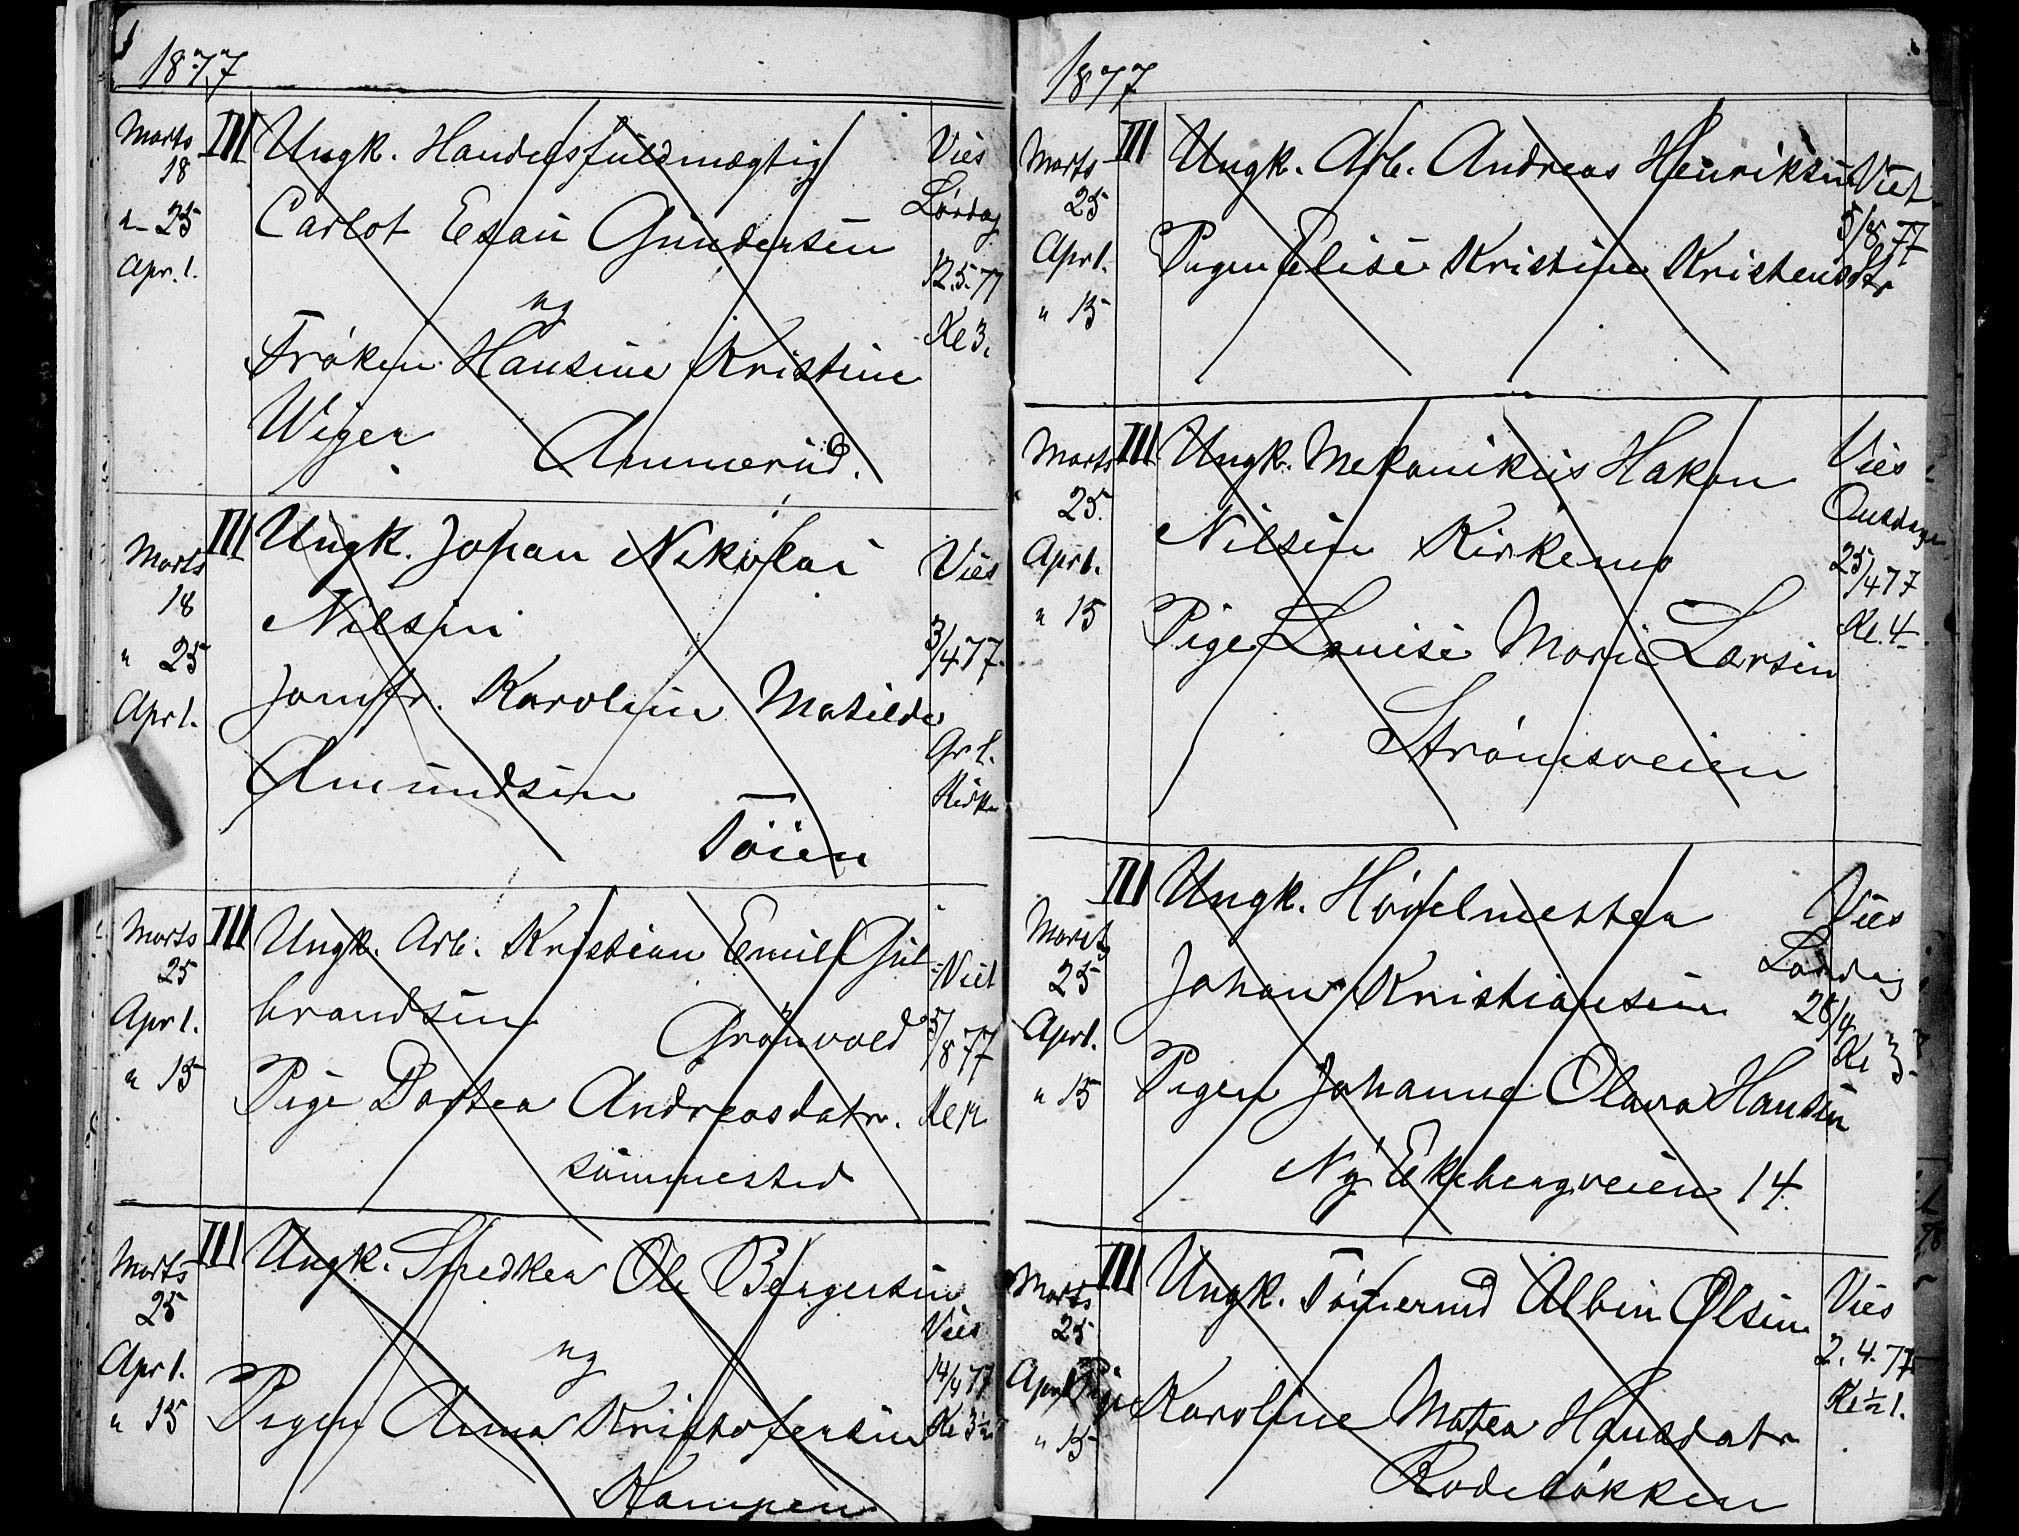 1877
Marts 18 III Ungk. Handelsfuldmægtig Vies
Carlot Esau Gundersen Lørdag
" 25 12.5.77
Apr. 1. og Kl 3.
Frøken Hansine Kristine
Wiger Ammerud.
Marts 18 III Ungk. Johan Nikolai Vies
Nilsen 3/4 77.
" 25 Jomfr. Karoline Matilde
Apr 1. Amundsen Grl. Kirke
Töien
Marts 25 III Ungk. Arb. Kristian Emil Gul- Viet
Apr 1. brandsen Grönvold 5/8 77
" 15 Pige Dortea Andreasdatr. Kl
sammested
Marts 25 III Ungk. Snedker Ole Bergersen Vies
Apr 1. og 14/4 77
" 15 Pigen Anna Kristofersen Kl 3½
Kampen
1877
Marts 25 III Ungk. Arb. Andreas Henriksen Viet
Apr 1. Pigen Elise Kristine Kristensdtr 5/8 77
" 15
Marts 25. III Ungk. Mekanikus Hakon Vies
Nilsen Kirkemo Onsdagen
Apr 1. 25/4 77
" 15 Pige Louise Marie Larsen Kl. 4
Strömsveien
Marts 25 III Ungk. Hövelmester Vies
Johan Kristiansen Lørdag
Apr 1. 28/4 Kl 3
" 15 Pigen Johanne Olava Hansen
Ny Ekebergveien 14.
Marts 25 III Ungk. Tömermd Albin Olsen Vies
2. 4. 77
Apr 1 Pige Karoline Matea Hansdatr Kl ½ 1.
" 15
Rodelökken